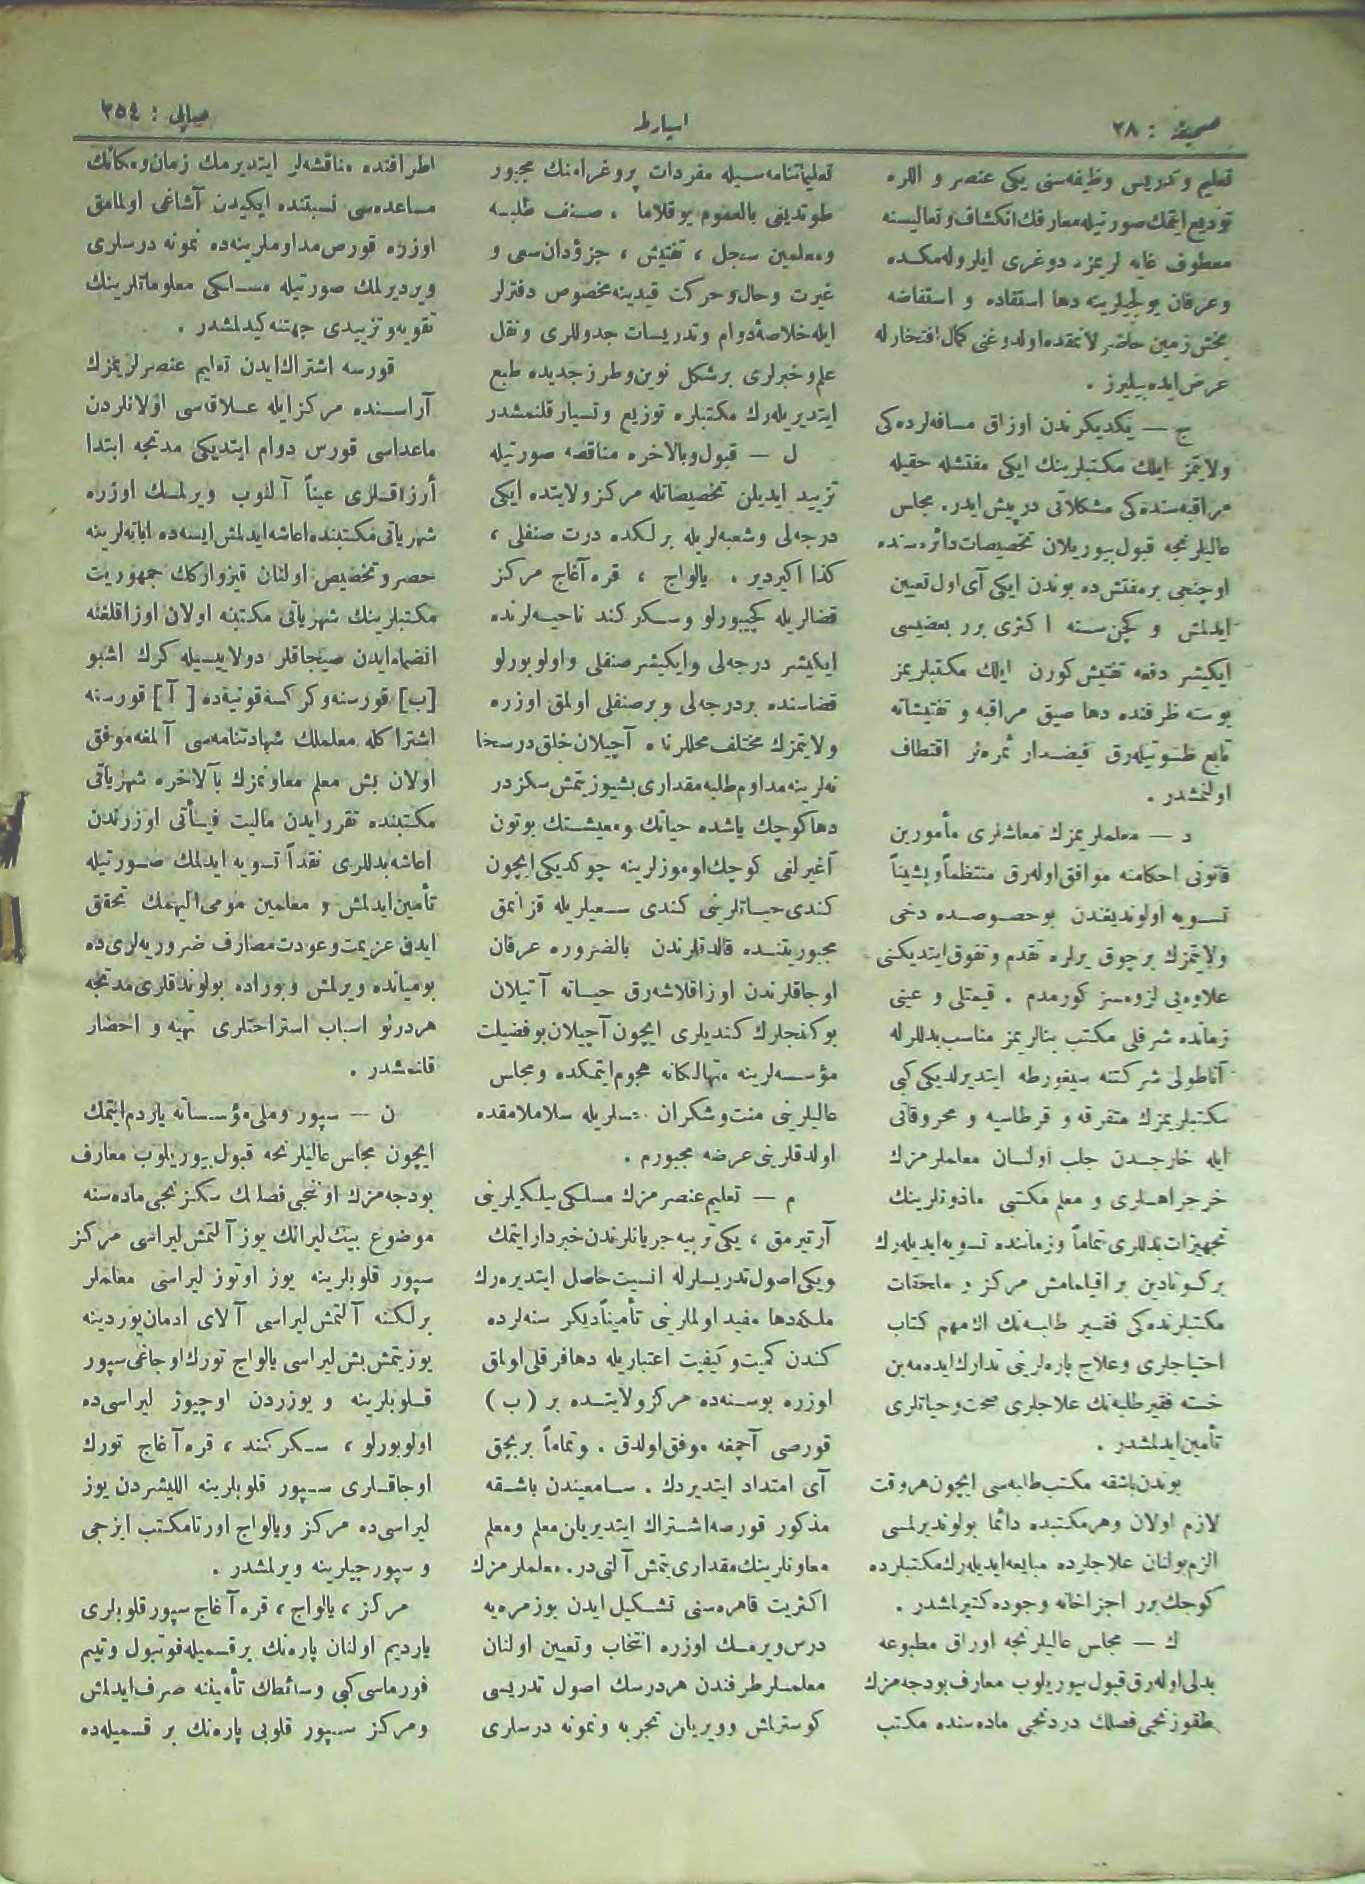 صحیفه : ٢٨
اسپارطه
صایی : ٣٥٤
تعلیم و تدریس وظیفه‌سنی یكی عنصر و اللره
تودیع ایتمك صورتیله معارفك انكشاف و تعالیسنه
معطوف غایه لریمزه دوغری ایلروله‌مكده
وعرفان یولجیلرینه دها استفاده و استفاضه
بخش زمین حاضرلانمقده اولدوغنی كمال افتخارله
عرض ایده بیلیرز .
ج — یكدیكرندن اوزاق مسافه‌لرده‌كی
ولایتمز ایلك مكتبلرینك ایكی مفتشله حقیله
مراقبه‌سنده‌كی مشكلاتی درپیش ایدر. مجلس
عالیلرنجه قبول بیوریلان تخصیصات دائره‌سنده
اوچنجی برمفتش‌ده بوندن ایكی آی اول تعیین
ایدلمش و كچن سنه اكثری برر بعضیسی
ایكیشر دفعه تفتیش كورن ایلك مكتبلریمز
بوسنه ظرفنده دها صیق مراقبه و تفتیشاته
تابع طوتیله‌رق فیضدار ثمره‌لر اقتطاف
اولنمشدر .
د — معلملریمزك معاشلری مأمورین
قانونی احكامنه موافق اوله‌رق منتظماً و پشیناً
تسویه اولوندیغندن بوخصوصده دخی
ولایتمزك برچوق یرلره تقدم و تفوق ایتدیكنی
علاوه‌یی لزومسز كورمدم . قیمتلی و عینی
زمانده شرفلی مكتب بنالریمز مناسب بدللرله
آناطولی شركتنه سیغورطه ایتدیرلدیكی كبی
مكتبلریمزك متفرقه و قرطاسیه و محروقاتی
ایله خارجدن جلب اولنان معلملرمزك
خرجراهلری و معلم مكتبی ماذونلرینك
تجهیزات بدللری تماماً وزماننده تسویه ایدیله‌رك
مكتبلرنده‌كی فقیر طلبه‌نك اك مهم كتاب
احتیاجلری وعلاج پاره‌لرینی تدارك ایده‌مه‌ین
خسته فقیر طلبه‌نك علاجلری صحت و حیاتلری
تأمین ایدلمشدر .
بوندن باشقه مكتب طلبه‌سی ایچون هروقت
لازم اولان وهرمكتبده دائما بولوندیرلمسی
الزم بولنان علاجلرده مبایعه ایدیله‌رك مكتبلرده
كوچك برر اجزاخانه وجوده كتیرلمشدر .
ك — مجلس عالیلرنجه اوراق مطبوعه
بدلی اوله‌رق قبول بیوریلوب معارف بودجه‌مزك
طقوزنجی فصلك دردنجی ماده‌سنده مكتب
تعلیماتنامه‌سیله مفردات پروغرامنك مجبور
طوتدیغی بالعموم یوقلاما ، صنف طلبه
ومعلمین سجل ، تفتیش ، جزؤدان سعی و
غیرت وحال وحركت قیدینه مخصوص دفترلر
ایله خلاصهٔ دوام وتدریسات جدوللری ونقل
علم وخبرلری برشكل نوین وطرز جدیده طبع
ایتدیریله‌رك مكتبلره توزیع و تسیار قلنمشدر
ل — قبول وبالاخره مناقصه صورتیله
تزیید ایدیلن تخصیصاتله مركز ولایتده ایكی
درجه‌لی وشعبه‌لریله برلكده درت صنفلی ،
كذا اكیردیر . یالواج ، قره‌آغاج مركز
قضالریله كچیبورلو وسكركند ناحیه‌لرنده
ایكیشر درجه‌لی وایكیشر صنفلی واولوبورلو
قضاسنده بردرجه‌لی وبرصنفلی اولمق اوزره
ولایتمزك مختلف محللرنده آچیلان خلق درسخا
نه‌لرینه مداوم طلبه مقداری بشیوزیتمش سكزدر
دها كوچك یاشده حیاتك ومعیشتك بوتون
آغیرلغی كوچك اوموزلرینه چوكدیكی ایچون
كندی حیاتلرینی كندی سعیلریله قزانمق
مجبوریتنده قالدقلرندن بالضروره عرفان
اوجاقلرندن اوزاقلاشه‌رق حیاته آتیلان
بوكنجلرك كندیلری ایچون آچیلان بوفضیلت
مؤسسه‌لرینه متهالكانه هجوم ایتمكده ومجلس
عالیلرینی منت وشكران حسلریله سلاملامقده
اولدقلرینی عرضه مجبورم .
م — تعلیم عنصرمزك مسلكی بیلكیلرینی
آرتیرمق ، یكی تربیه جریانلرندن خبردار ایتمك
ویكی اصول تدریسلرله انسیت حاصل ایتدیره‌رك
ملكه‌دها مفید اولمارینی تأمیناً دیكر سنه‌لرده
كندن كمیت وكیفیت اعتباریله دها فرقلی اولمق
اوزره بوسنه‌ده مركزولایتده بر (ب)
قورصی آچمغه موفق اولدق . وتماماً بربچق
آی امتداد ایتدیردك . سامعیندن باشقه
مذكور قورصه اشتراك ایتدیریلن معلم ومعلم
معاونلرینك مقداری یتمش آلتی‌در. معلملرمزك
اكثریت قاهره‌سنی تشكیل ایدن بوزمره‌یه
درس ویرمك اوزره انتخاب وتعیین اولنان
معلملر طرفندن هردرسك اصول تدریسی
كوسترلمش وویریلن تجربه ونمونه درسلری
اطرافنده مناقشه‌لر ایتدیرمك زمان ومكانك
مساعده‌سی نسبتنده ایكیدن آشاغی اولمامق
اوزره قورص مداوملرینه‌ده نمونه درسلری
ویردیرلمك صورتیله مسلكی معلوماتلرینك
تقویه وتزییدی جهتنه كیدلمشدر .
قورسه اشتراك ایدن تعلیم عنصرلریمزك
آراسنده مركزایله علاقه‌سی اولانلردن
ماعداسی قورس دوام ایتدیكی مدتجه ابتدا
أرزاقلری عیناً آلنوب ویرلمك اوزره
شهریاتی مكتبنده اعاشه ایدلمش ایسه‌ده اباته‌لرینه
حصر وتخصیص اولنان قیزوارك جمهوریت
مكتبلرینك شهریاتی مكتبنه اولان اوزاقلغنه
انضمام ایدن صیجاقلر دولاییسیله كرك اشبو
[ب] قورسنه وكركسه قونیه‌ده [آ] قورسنه
اشتراكله معلملك شهادتنامه‌سی آلمغه موفق
اولان بش معلم معاونمزك بالآخره شهریاتی
مكتبنده تقررایدن مالیت فیأتی اوزرندن
اعاشه بدللری نقداً تسویه ایدلمك صورتیله
تأمین ایدلمش و معلمین مومی‌الیهمك تحقق
ایدن عزیمت وعودت مصارف ضروریه‌لری‌ده
بومیانده ویرلمش وبوراده بولوندقلری مدتجه
هردرلو اسباب استراحتلری تهیه و احضار
قلنمشدر .
ن — سپور وملی مؤسساته یاردم ایتمك
ایچون مجلس عالیلرنجه قبول بیوریلوب معارف
بودجه‌مزك اونجی فصلك سكزنجی ماده‌سنه
موضوع بیك لیرانك یوز آلتمش لیراسی مركز
سپور قلوبلرینه یوز اوتوز لیراسی معلملر
برلكنه آلتمش لیراسی آلای ادمان یوردینه
یوزیتمش بش لیراسی یالواج تورك اوجاغی سپور
قلوبلرینه و یوزردن اوچیوز لیراسی‌ده
اولوبورلو ، سكركند ، قره‌آغاج تورك
اوجاقلری سپور قلوبلرینه اللیشردن یوز
لیراسی‌ده مركز ویالواج اورتامكتب ایزجی
و سپورجیلرینه ویرلمشدر .
مركز ، یالواج ، قره‌آغاج سپور قلوبلری
یاردیم اولنان پاره‌نك برقسمیله فوتبول وتیم
فورماسی كبی وسائطك تأمیننه صرف ایدلمش
ومركز سپور قلوبی پاره‌نك بر قسمیله‌ده